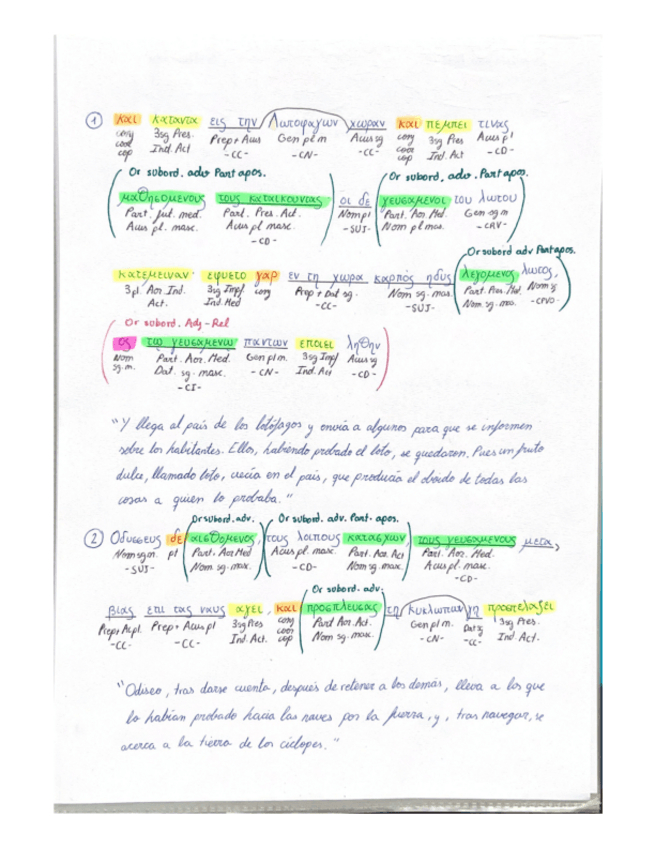 ① και κατάντα εις την Λωτοφαγων χωραν και πεμπει τινας
conj coor cop 3sg Pres. Ind. Act Prep + Acus -CC- Gen pl m -CN- Acus sg -CC- conj coor cop 3sg Pres Ind. Act Acus pl -CD-
Or subord. adv Part apos. Or subord. adv. Part apos.
μαθησομενους τους κατοικουντας οι δε γευσαμενοι του λωτου
Part. fut. med. Acus pl. masc. Part. Pres. Act. Acus pl masc. -CD- Nom pl -SUJ- Part. Aor. Med. Nom pl mas. Gen sg m -CRV-
Or subord adv Part apos.
κατεμειναν· εφυετο γαρ εν τη χωρα καρπος ηδυς λεγομενος λωτος,
3 pl. Aor. Ind. Act. 3sg Impf Ind. Med conj Prep + Dat sg. -CC- Nom sg. mas. -SUJ- Part. Pres. Med. Nom sg. mas. Nom sg -CPVO-
Or subord. Adj-Rel
ος τω γευσαμενω παντων εποιει ληθην
Nom sg. m. Part. Aor. Med. Dat. sg. masc. -CI- Gen pl m. -CN- 3sg Impf Ind. Act Acus sg -CD-
"Y llega al país de los lotófagos y envía a algunos para que se informen
sobre los habitantes. Ellos, habiendo probado el loto, se quedaron. Pues un fruto
dulce, llamado loto, crecía en el país, que producía el olvido de todas las
cosas a quien lo probaba."
Or subord. adv. Or subord. adv. Part-apos.
② Οδυσσευς δε αισθομενος, τους λοιπους κατασχων, τους γευσαμενους μετα
Nom sg m. -SUJ- pt Part. Aor Med Nom sg. masc. Acus pl. masc. -CD- Part. Aor. Act Nom sg. masc. Part. Aor. Med. Acus pl. masc. -CD-
Or subord. adv.
βιας επι τας ναυς αγει, και προσπλευσας τη Κυκλωπων γη προσπελαζει
-CC- Prep + Acus pl -CC- 3sg Pres Ind. Act. conj coor cop Part Aor. Act. Nom sg. masc. Gen pl m. -CN- Dat sg -CC- 3sg. Pres Ind. Act.
"Odiseo, tras darse cuenta, después de retener a los demás, lleva a los que
lo habían probado hacia las naves por la fuerza, y, tras navegar, se
acerca a la tierra de los cíclopes."